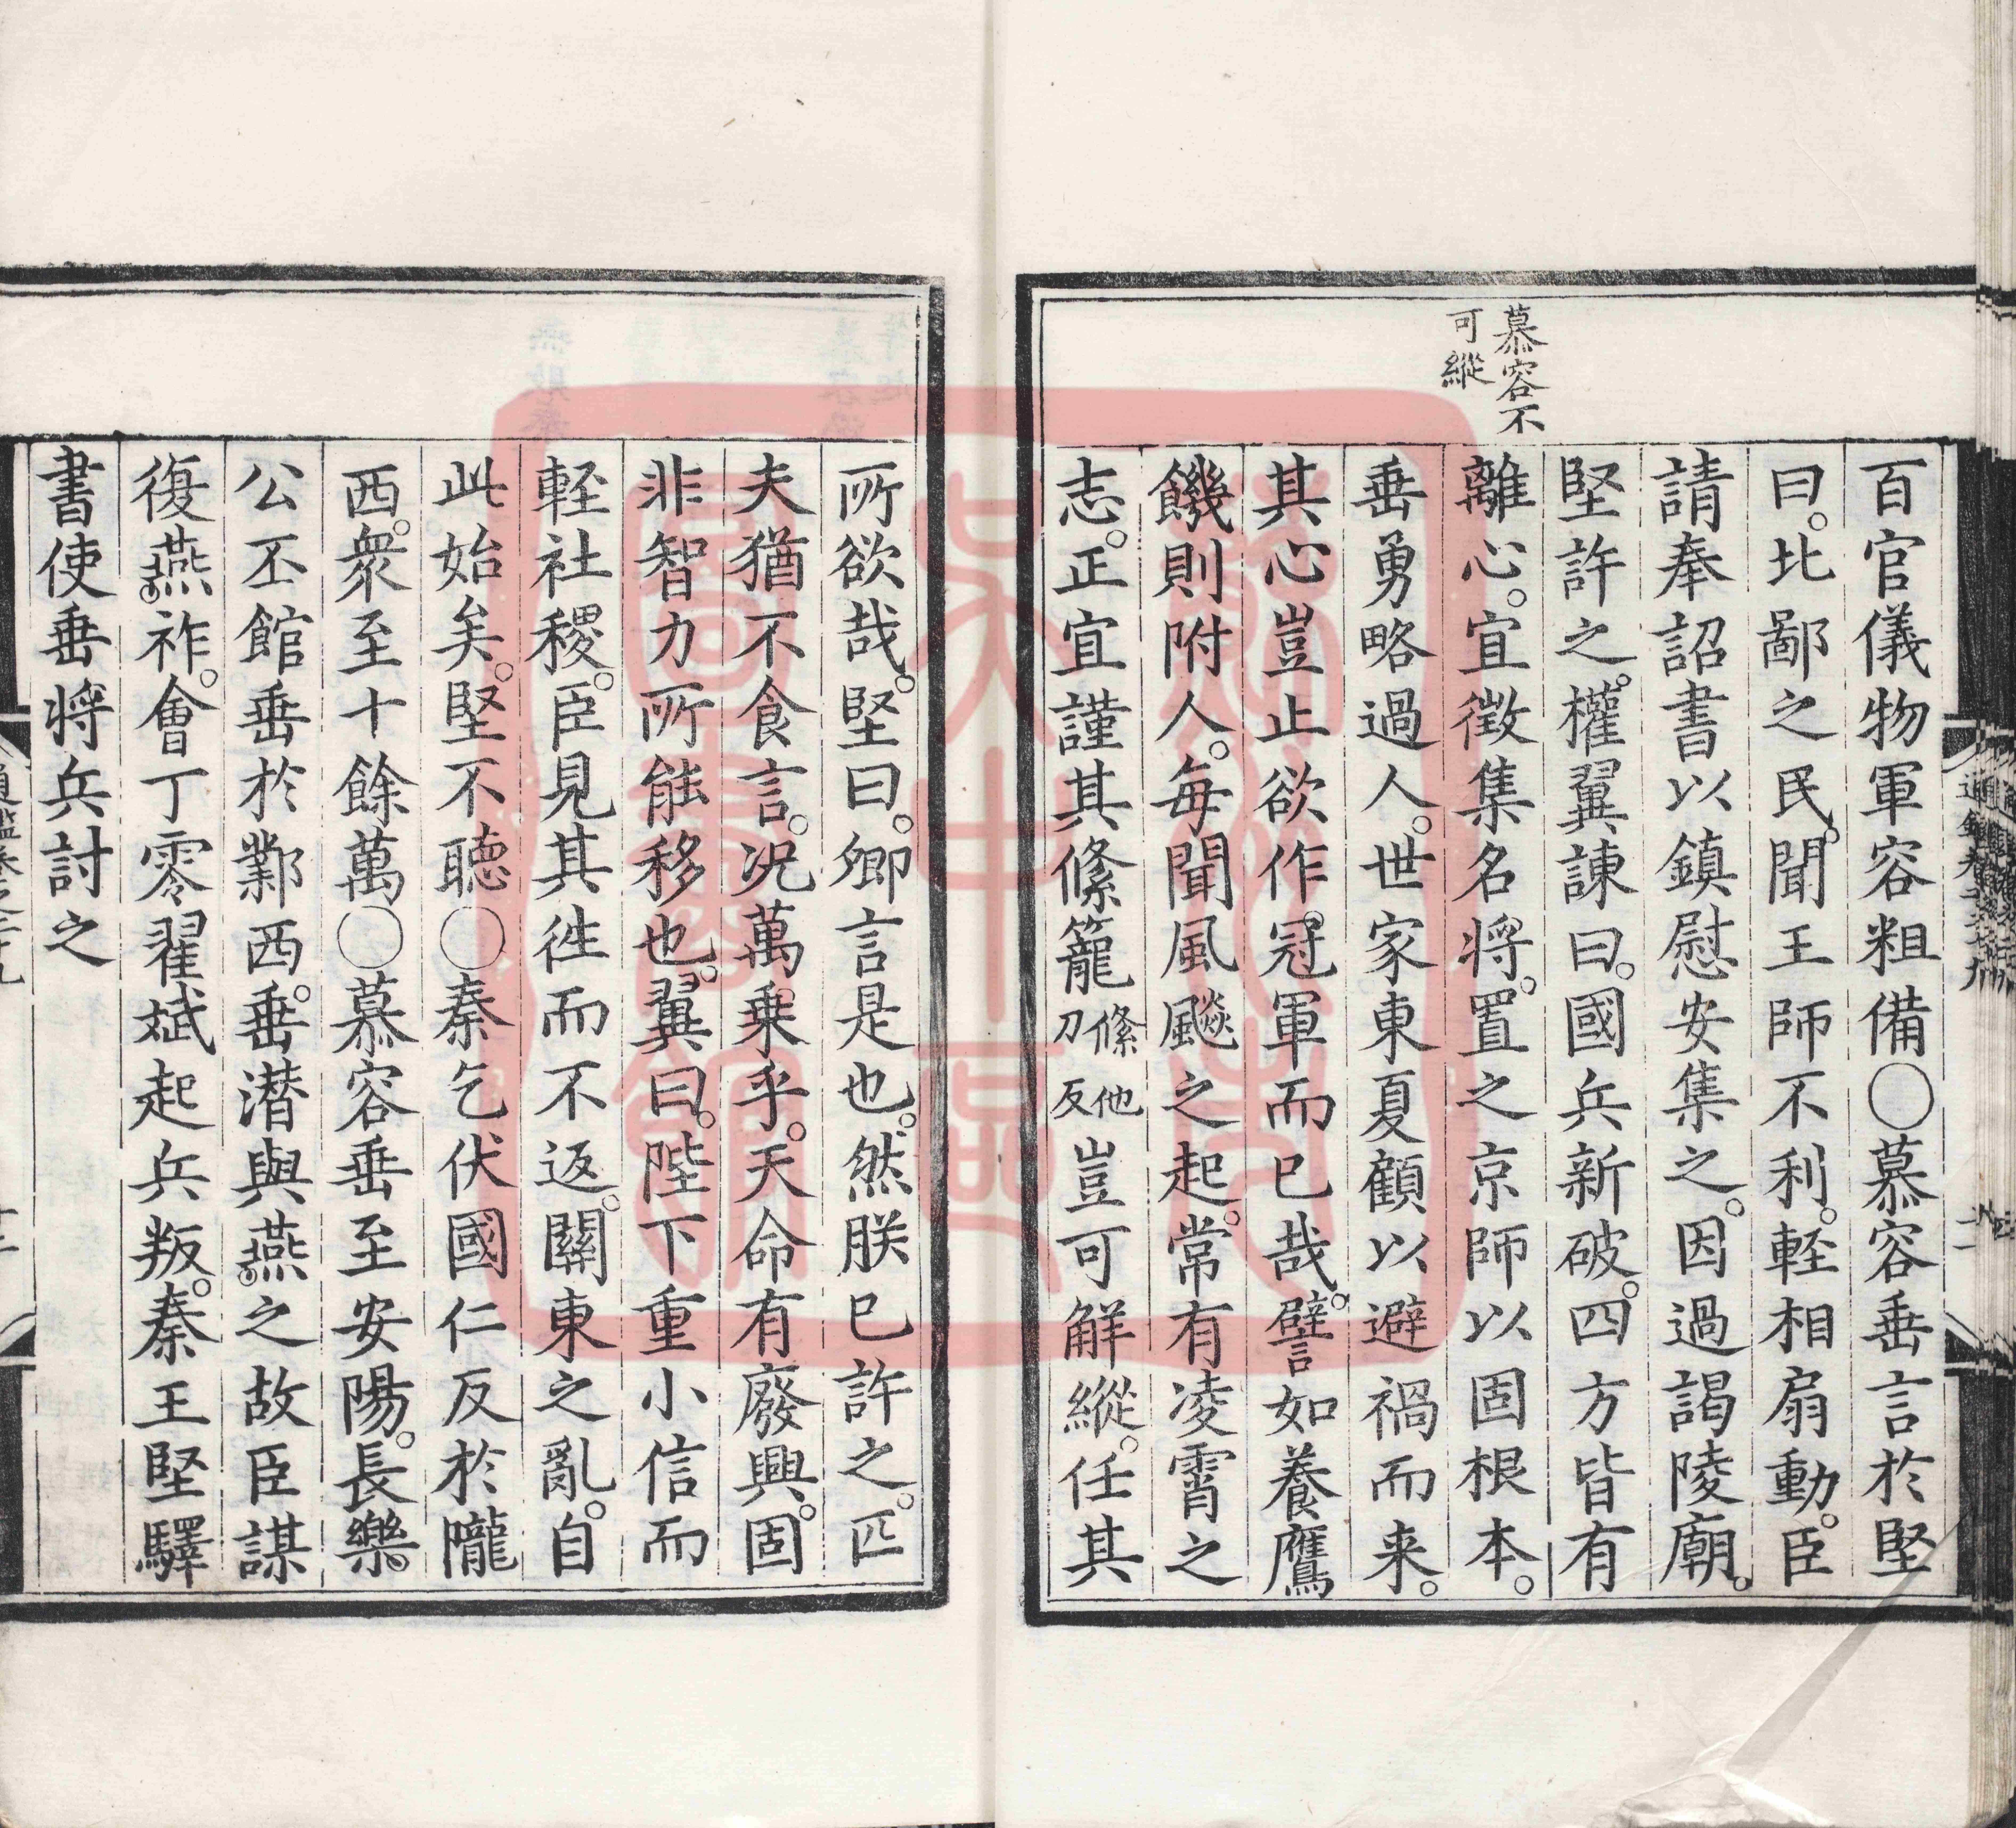 慕容不
可縱
百官儀物軍容粗備〇慕容垂言於堅
曰。北鄙之民。聞王師不利。輕相扇動。臣
請奉詔書以鎮慰安集之。因過謁陵廟。
堅許之。權翼諫曰。國兵新破。四方皆有
離心。宜徵集名將。置之京師以固根本。
垂勇略過人。世家東夏顧以避禍而来。
其心豈止欲作冠軍而已哉。譬如養鷹
饑則附人。每聞風飈之起。常有凌霄之
志。正宜謹其絛籠絛他刀反豈可解縱。任其
所欲哉。堅曰。卿言是也。然朕已許之。匹
夫猶不食言。况萬乗乎。天命有廢興。固
非智力所能移也。翼曰。陛下重小信而
輕社稷。臣見其徃而不返。關東之亂。自
此始矣。堅不聽〇秦乞伏國仁反於隴
西。衆至十餘萬〇慕容垂至安陽。長樂
公丕館垂於鄴西。垂潜與燕之故臣謀
復燕祚。會丁零翟斌起兵叛。秦王堅驛
書使垂將兵討之